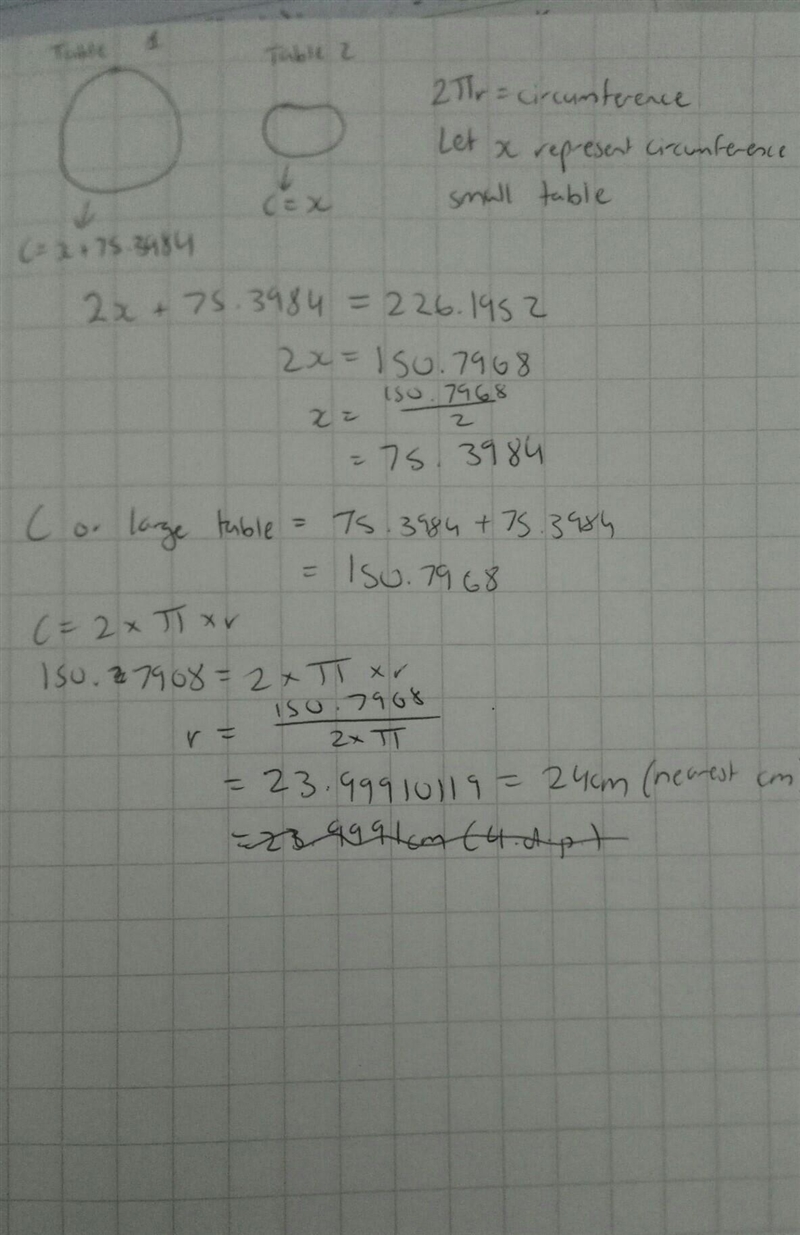 Table 1 Table 2
2πr = circumference
Let x represent circumference
small table
C = x
C = x + 75.3984
2x + 75.3984 = 226.1952
2x = 150.7968
x = 150.7968 / 2
= 75.3984
C o. large table = 75.3984 + 75.3984
= 150.7968
C = 2 × π × r
150.7968 = 2 × π × r
r = 150.7968 / 2 × π
= 23.99910119 = 24cm (nearest cm
= 23.9991cm (4.d.p)